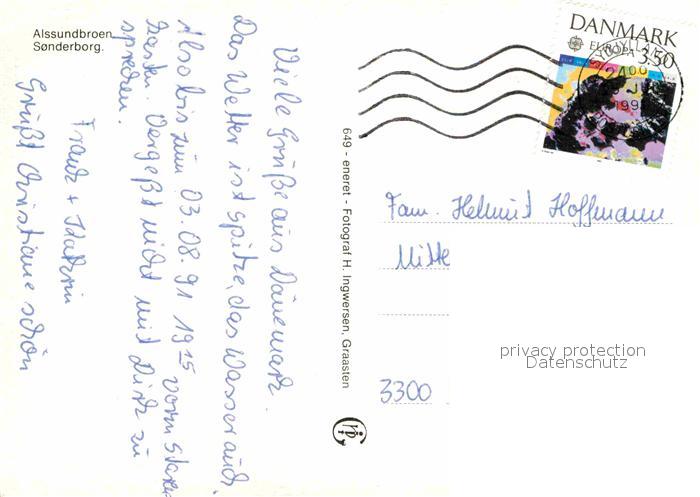 Alssundbroen
Sønderborg.
Viele Grüße aus Dänemark.
Das Wetter ist spitze, das Wasser auch.
Also bis zum 03.08.91 19¹⁵ vorm
Kasten. Vergeßt nicht mit Dirk zu
sprechen.
Frank + Katrin
Grüßt Christiane schön
649 - eneret - Fotograf H. Ingwersen, Graasten
DANMARK
EUROPA 3.50
Fam. Helmut Hoffmann
Mitte
3300
privacy protection
Datenschutz